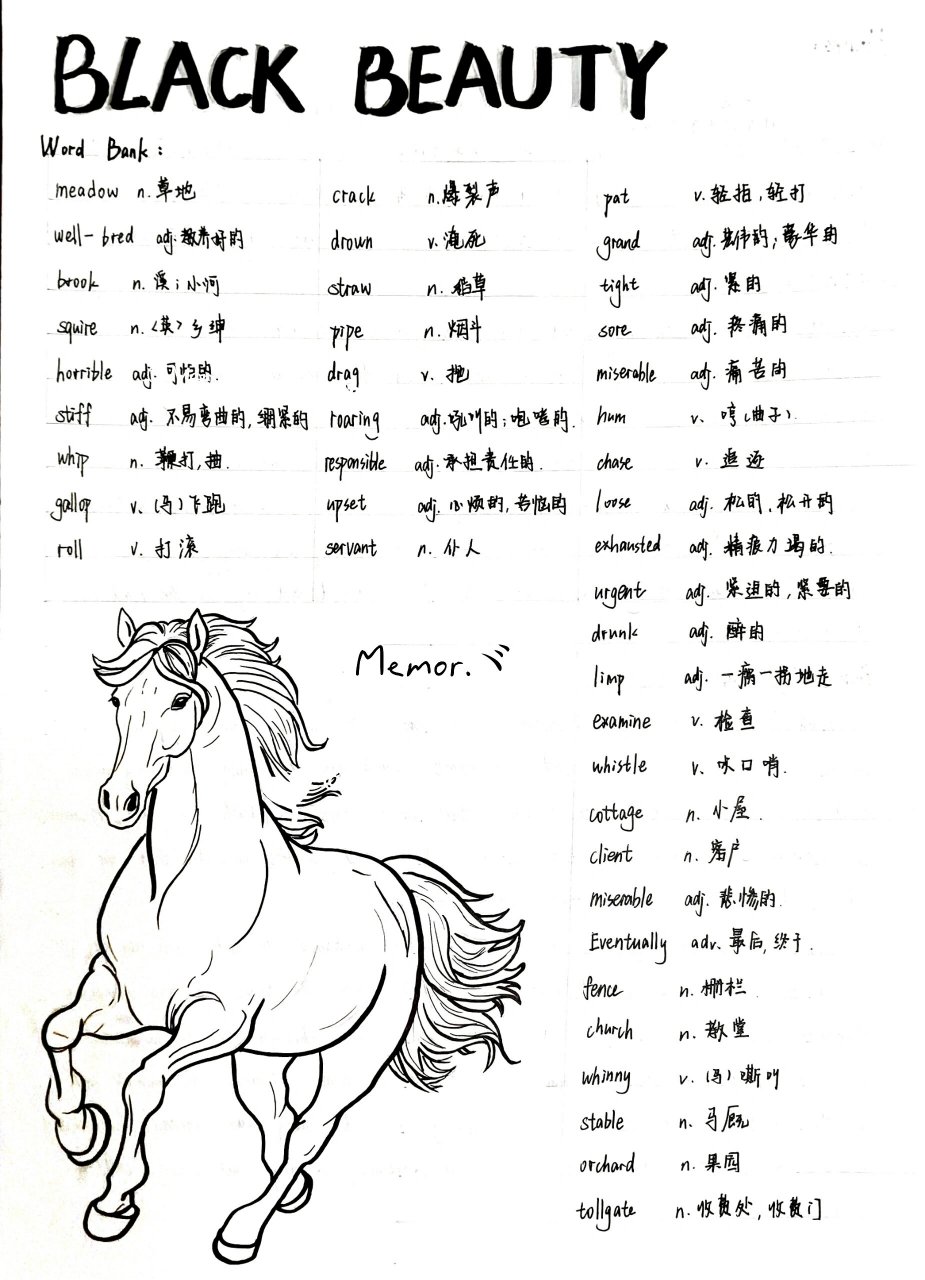 BLACK BEAUTY
Word Bank:
meadow n.草地
well-bred adj.教养好的
brook n. 溪;小河
squire n.<英>乡绅
horrible adj.可怕的.
stiff adj. 不易弯曲的,绷紧的
whip n. 鞭打,抽.
gallop v. (马)飞跑
roll v. 打滚
crack n.爆裂声
drown v.淹死
straw n. 稻草
pipe n. 烟斗
drag v. 拖
roaring adj.吼叫的;咆哮的.
responsible adj.承担责任的.
upset adj.心烦的,苦恼的
servant n. 仆人
pat v.轻拍,轻打
grand adj.宏伟的;豪华的
tight adj. 紧的
sore adj. 疼痛的
miserable adj. 痛苦的
hum v. 哼(曲子).
chase v. 追逐
loose adj. 松的,松开的
exhausted adj. 精疲力竭的.
urgent adj. 紧迫的,紧要的
drunk adj. 醉的
limp adj. 一瘸一拐地走
examine v. 检查
whistle v. 吹口哨.
cottage n. 小屋.
client n. 客户
miserable adj. 悲惨的.
Eventually adv. 最后,终于.
fence n. 栅栏
church n. 教堂
whinny v. (马)嘶叫
stable n. 马厩
orchard n. 果园
tollgate n. 收费处,收费门
Memor.